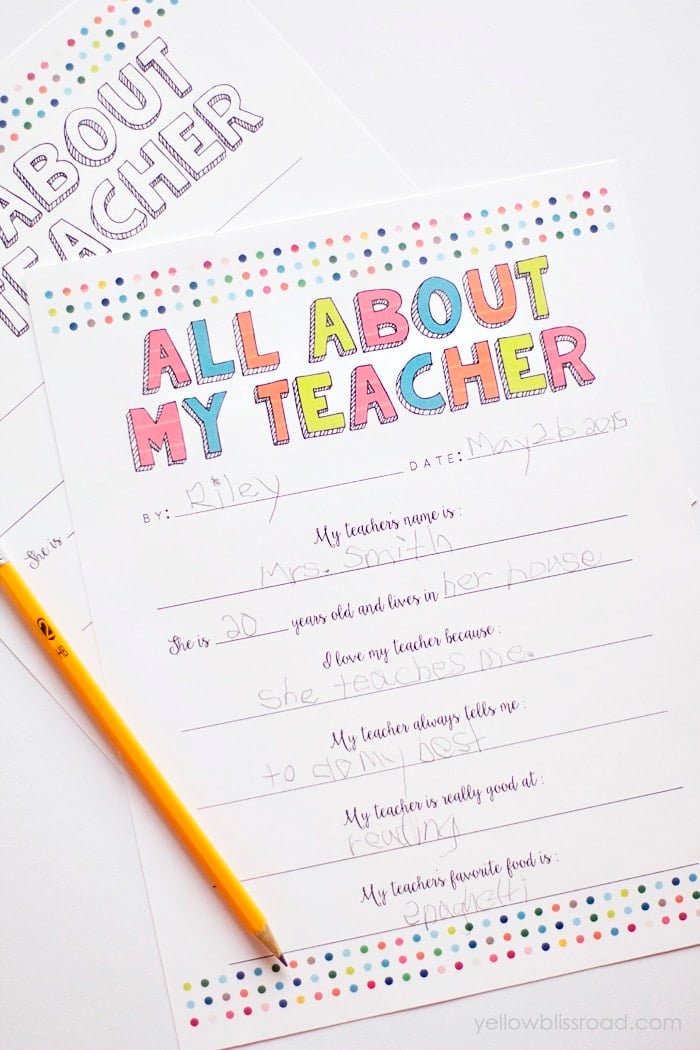 ABOUT
TEACHER
She is
ALL ABOUT
MY TEACHER
BY: Riley DATE: May 26 2015
My teacher's name is:
Mrs. Smith
She is 20 years old and lives in her house
I love my teacher because:
She teaches me.
My teacher always tells me:
to do my best
My teacher is really good at:
reading
My teacher's favorite food is:
Spaghetti
2
yellowblissroad.com